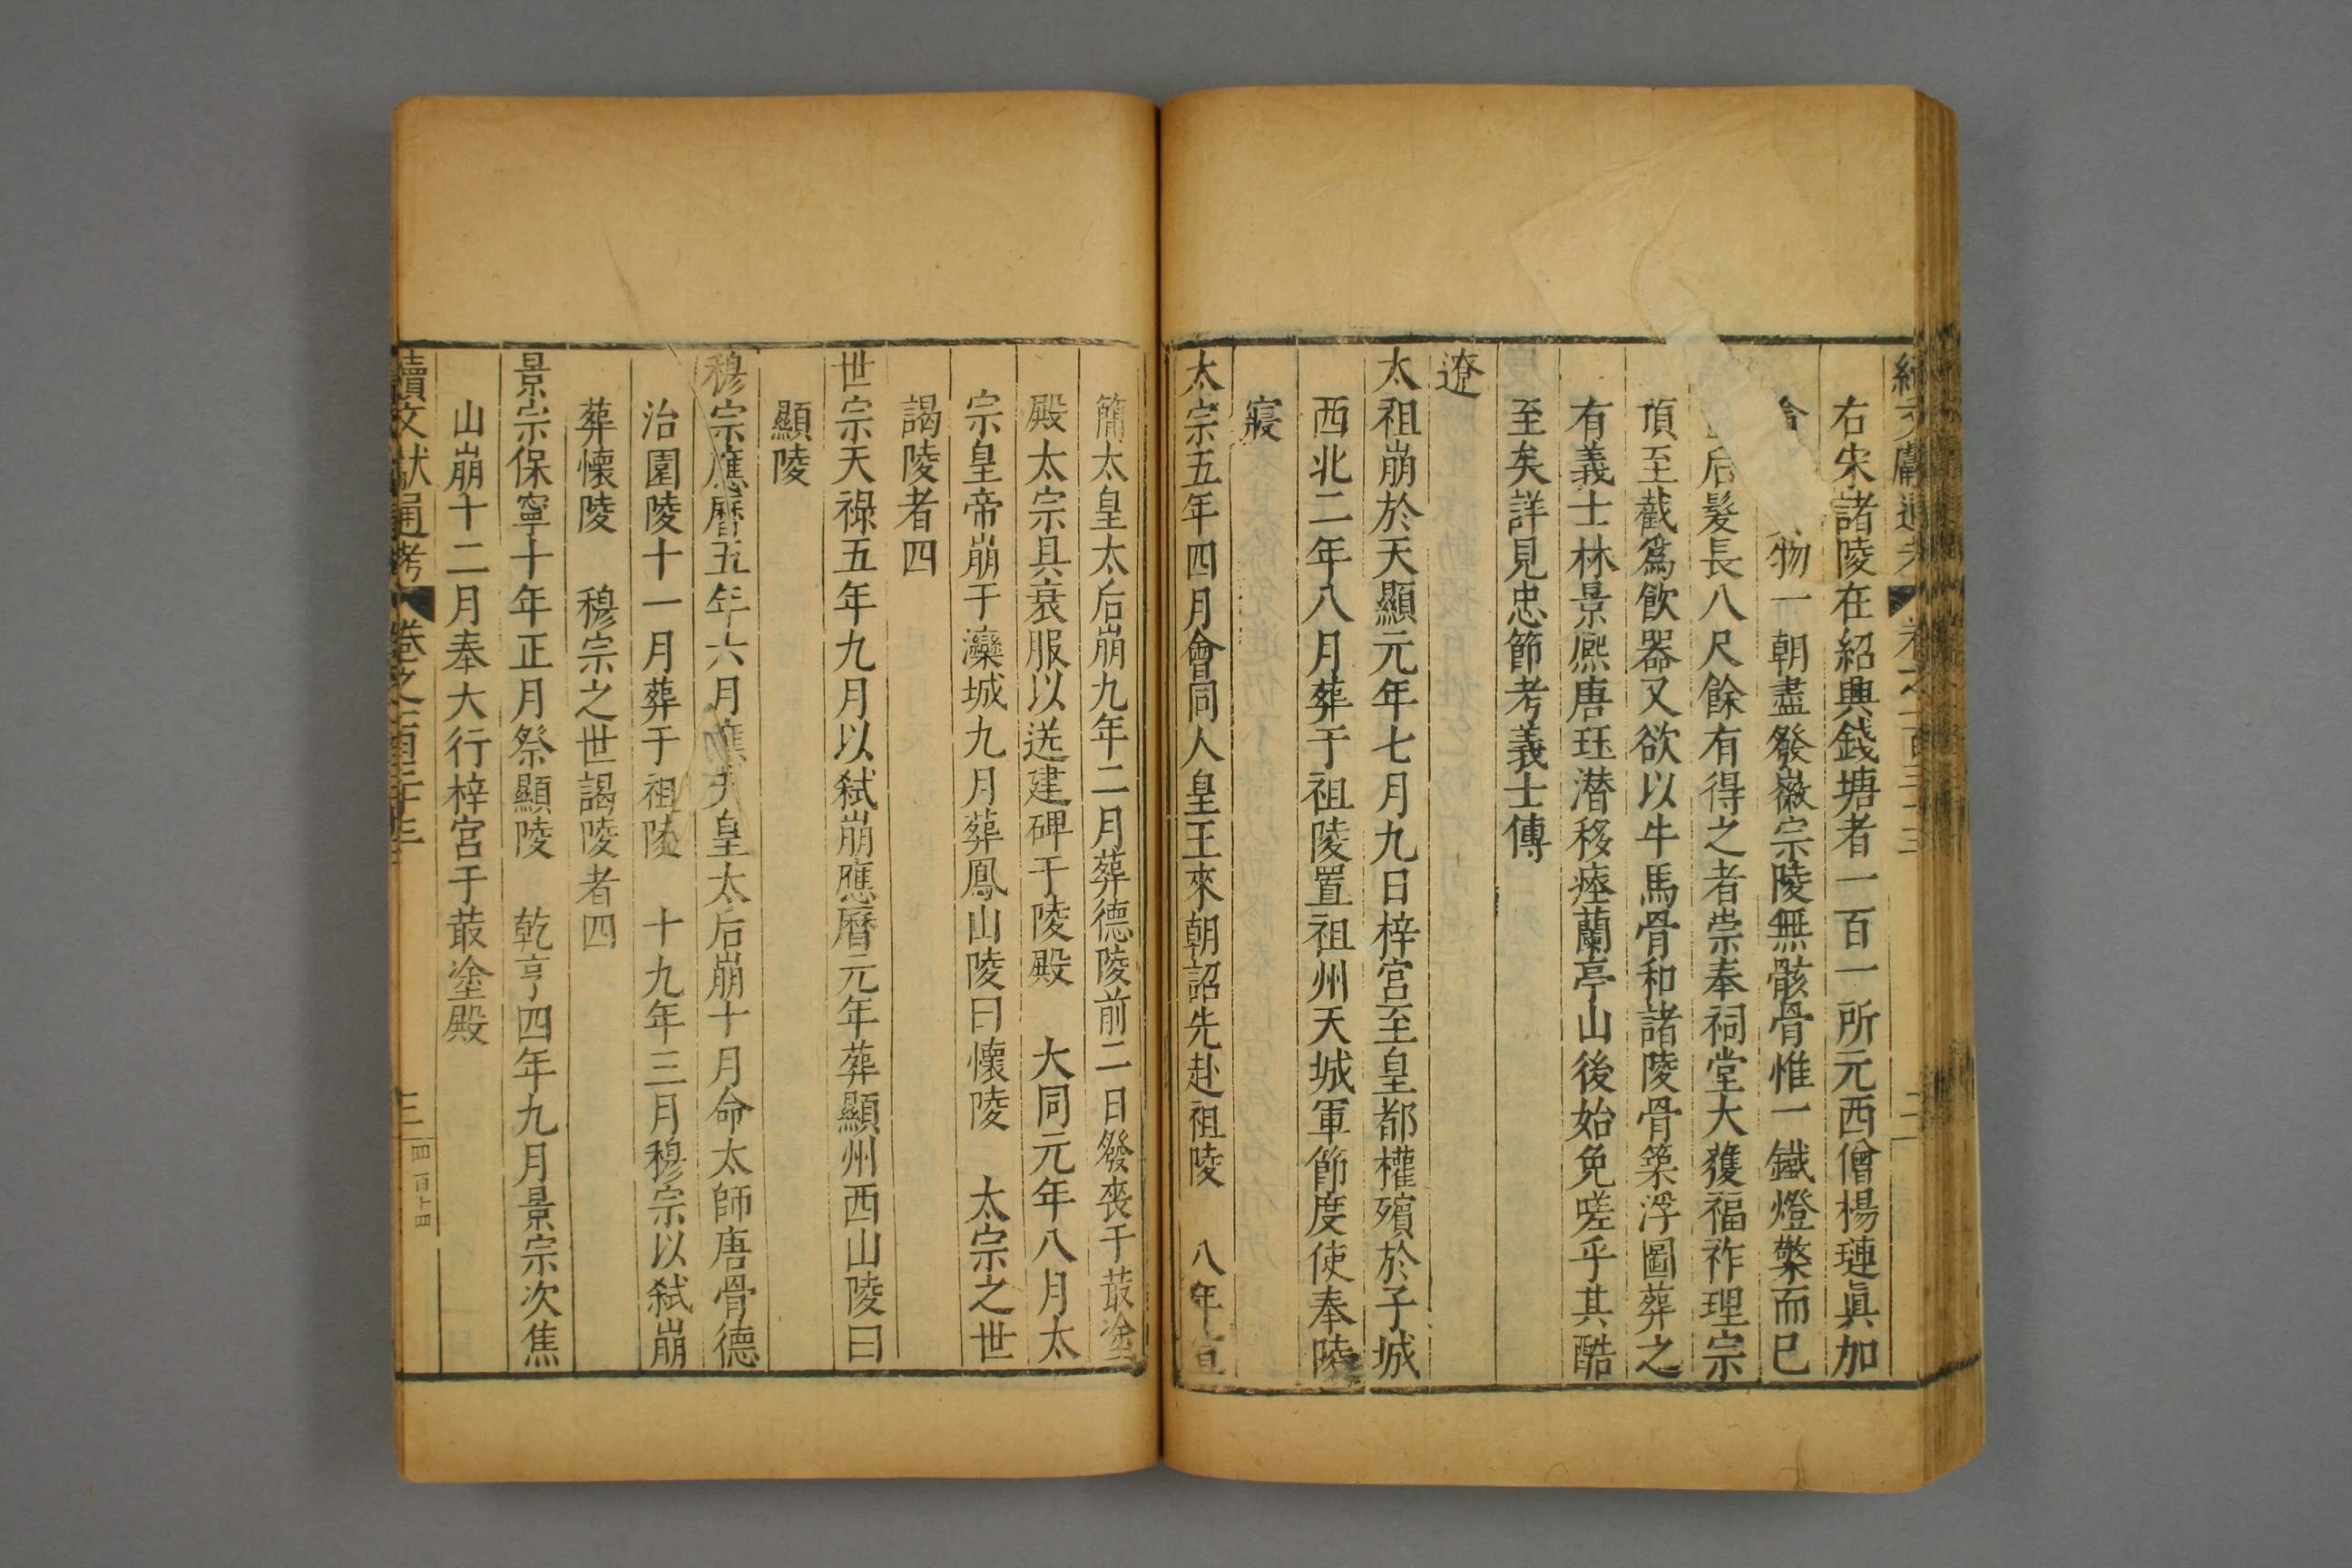 右宋諸陵在紹興錢塘者一百一所元西僧楊璉眞加
物一朝盡發徽宗陵無骸骨惟一鐵燈檠而已
后髮長八尺餘有得之者崇奉祠堂大獲福祚理宗
頂至截爲飲器又欲以牛馬骨和諸陵骨築浮圖葬之
有義士林景熈唐珏潛移瘞蘭亭山後始免嗟乎其酷
至矣詳見忠節考義士傳
遼
太祖崩於天顯元年七月九日梓宮至皇都權殯於子城
西北二年八月葬于祖陵置祖州天城軍節度使奉陵
寢
太宗五年四月會同人皇王來朝詔先赴祖陵　八年宣
簡太皇太后崩九年二月葬德陵前二日發喪于菆塗
殿太宗具衰服以送建碑于陵殿　大同元年八月太
宗皇帝崩于灤城九月葬鳳山陵曰懷陵　太宗之世
謁陵者四
世宗天祿五年九月以弒崩應曆元年葬顯州西山陵曰
顯陵
穆宗應曆五年六月應天皇太后崩十月命太師唐骨德
治園陵十一月葬于祖陵　十九年三月穆宗以弒崩
葬懷陵　穆宗之世謁陵者四
景宗保寧十年正月祭顯陵　乾亨四年九月景宗次焦
山崩十二月奉大行梓宮于菆塗殿
續文獻通考　卷之一百三十三　三　四百七四